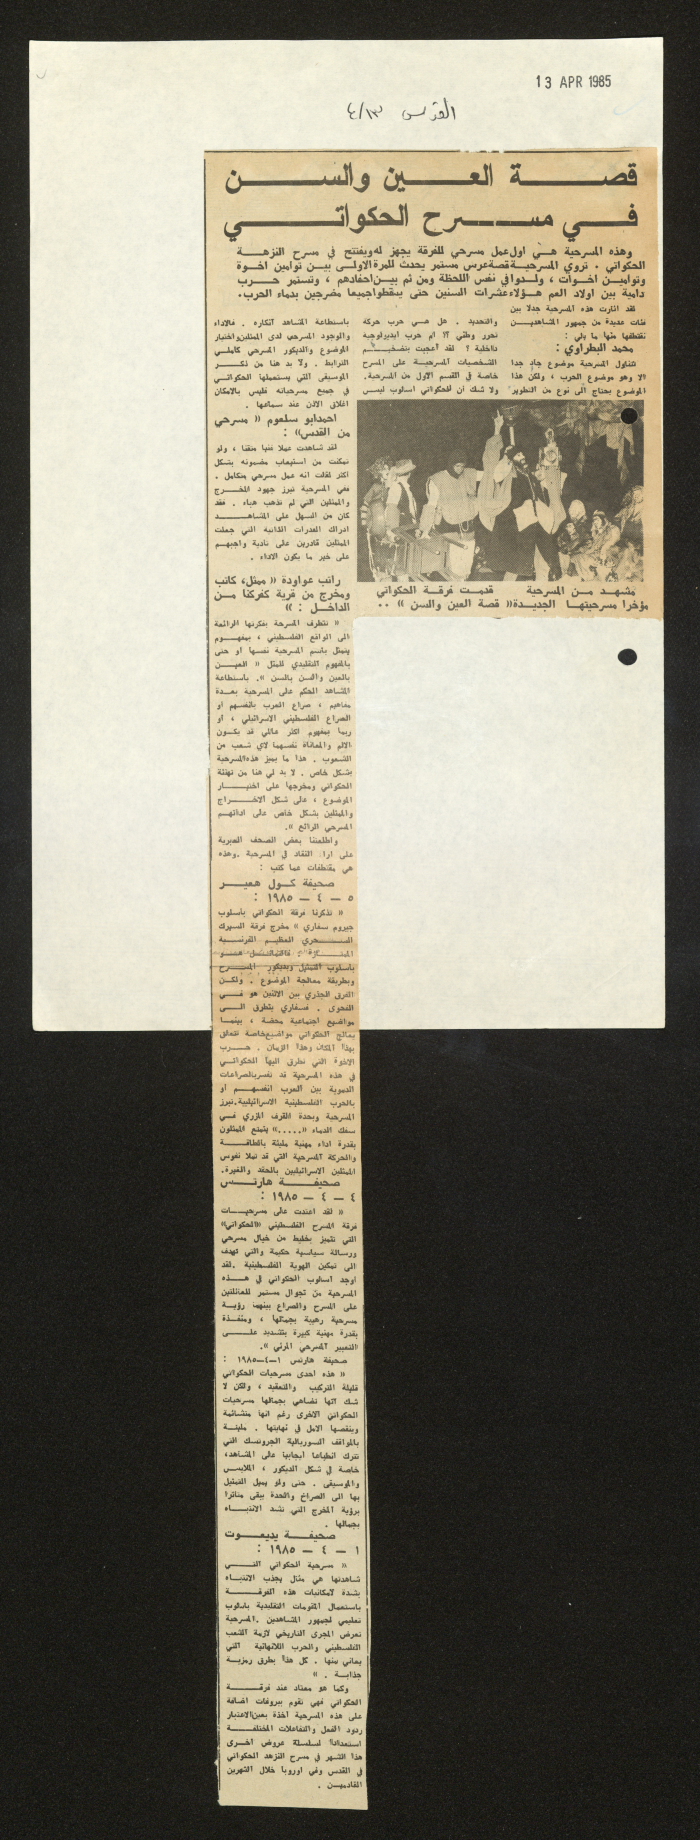 13 APR 1985
القدس ٤/١٣
قصة العين والسن
في مسرح الحكواتي
وهذه المسرحية هي اول عمل مسرحي للفرقة يجهز له ويفتتح في مسرح النزهة
الحكواتي . تروي المسرحية قصة عرس مستمر يحدث للمرة الاولى بين توأمين اخوة
وتوأمين اخوات ، ولدوا في نفس اللحظة ومن ثم بين احفادهم ، وتستمر حرب
دامية بين اولاد العم هؤلاء عشرات السنين حتى يسقطوا جميعا مضرجين بدماء الحرب.
لقد اثارت هذه المسرحية جدلا بين
فئات عديدة من جمهور المشاهدين
نقتطفها منها ما يلي :
محمد البطراوي :
تتناول المسرحية موضوع جاد جدا
الا وهو موضوع الحرب ، ولكن هذا
الموضوع يحتاج الى نوع من التطوير
والتحديد . هل هي حرب حركة
تحرر وطني ؟؟ ام حرب ايديولوجية
داخلية ؟ لقد اعجبت بتضخيم
الشخصيات المسرحية على المسرح
خاصة في القسم الاول من المسرحية.
ولا شك ان للحكواتي اسلوب ليس
باستطاعة المشاهد انكاره . فالاداء
والوجود المسرحي لدى الممثلين واختيار
الموضوع والديكور المسرحي كاملي
الترابط . ولا بد هنا من ذكر
الموسيقى التي يستعملها الحكواتي
في جميع مسرحياته فليس بالامكان
اغلاق الاذن عند سماعها .
مشهد من المسرحية
قدمت فرقة الحكواتي
مؤخرا مسرحيتها الجديدة « قصة العين والسن » ..
احمد ابو سلعوم « مسرحي
من القدس» :
لقد شاهدت عملا فنيا متقنا ، ولو
تمكنت من استيعاب مضمونه بشكل
اكثر لقلت انه عمل مسرحي متكامل .
ففي المسرحية تبرز جهود المخرج
والممثلين التي لم تذهب هباء . فقد
كان من السهل على المشاهد
ادراك القدرات الذاتية التي جعلت
الممثلين قادرين على تادية واجبهم
على خير ما يكون الاداء .
راتب عواودة « ممثل، كاتب
ومخرج من قرية كفركنا من
الداخل : »
« تتطرف المسرحة بفكرتها الرائعة
الى الواقع الفلسطيني ، بمفهوم
يتمثل باسم المسرحية نفسها او حتى
بالمفهوم التقليدي للمثل « العين
بالعين والسن بالسن ». باستطاعة
المشاهد الحكم على المسرحية بعدة
مفاهيم ، صراع العرب بانفسهم او
الصراع الفلسطيني الاسرائيلي ، او
ربما بمفهوم اكثر عالمي قد يكون
الالم والمعاناة نفسهما لاي شعب من
الشعوب . هذا ما يميز هذه المسرحية
بشكل خاص . لا بد لي هنا من تهنئة
الحكواتي ومخرجها على اختيار
الموضوع ، على شكل الاخراج
والممثلين بشكل خاص على ادائهم
المسرحي الرائع ».
واطلعتنا بعض الصحف العبرية
على اراء النقاد في المسرحية .وهذه
هي مقتطفات عما كتب :
صحيفة كول هعير
٥ – ٤ – ١٩٨٥ :
« تذكرنا فرقة الحكواتي بأسلوب
جيروم سفاري » مخرج فرقة السيرك
السحري العظيم الفرنسية
بأسلوب التمثيل وبديكور المسرح
وبطريقة معالجة الموضوع . ولكن
الفرق الجذري بين الاثنين هو في
الفحوى . فسفاري يتطرق الى
مواضيع اجتماعية محضة ، بينما
يعالج الحكواتي مواضيع خاصة تتعلق
بهذا المكان وهذا الزمان . حرب
الاخوة التي تطرق اليها الحكواتي
في هذه المسرحية قد تفسر بالصراعات
الدموية بين العرب انفسهم او
بالحرب الفلسطينية الاسرائيلية.تبرز
المسرحية وبحدة القرف المزري في
سفك الدماء «.....» يتمتع الممثلون
بقدرة اداء مهنية مليئة بالطاقة
والحركة المسرحية التي قد تملا نفوس
الممثلين الاسرائيليين بالحقد والغيرة.
صحيفة هارتس
٤ – ٤ – ١٩٨٥ :
« لقد اعتدت على مسرحيات
فرقة المسرح الفلسطيني «الحكواتي»
التي تتميز بخليط من خيال مسرحي
ورسالة سياسية حكيمة والتي تهدف
الى تمكين الهوية الفلسطينية .لقد
اوجد اسلوب الحكواتي في هذه
المسرحية من تجوال مستمر للعائلتين
على المسرح والصراع بينهما رؤية
مسرحية رهيبة بجمالها ، ومنفذة
بقدرة مهنية كبيرة بتشديد على
التعبير المسرحي المرئي ».
صحيفة هارتس ١-٤-١٩٨٥ :
« هذه احدى مسرحيات الحكواتي
قليلة التركيب والتعقيد ، ولكن لا
شك انها تضاهي بجمالها مسرحيات
الحكواتي الاخرى رغم انها متشائمة
وينقصها الامل في نهايتها . مليئة
بالمواقف السوريالية الجروتسك التي
تترك انطباعا ايجابيا على المشاهد،
خاصة في شكل الديكور ، الملابس
والموسيقى . حتى ولو يميل التمثيل
بها الى الصراخ والحدة يبقى متاثرا
برؤية المخرج التي تشد الانتباه
بجمالها .
صحيفة يديعوت
١ – ٤ – ١٩٨٥ :
« مسرحية الحكواتي التي
شاهدتها هي مثال يجذب الانتباه
بشدة لامكانيات هذه الفرقة
باستعمال المقومات التقليدية باسلوب
تعليمي لجمهور المشاهدين .المسرحية
تعرض المجرى التاريخي لازمة الشعب
الفلسطيني والحرب اللانهائية التي
يعاني منها . كل هذا بطرق رمزية
جذابة . »
وكما هو معتاد عند فرقة
الحكواتي فهي تقوم ببروفات اضافة
على هذه المسرحية آخذة بعين الاعتبار
ردود الفعل والتفاعلات المختلفة
استعدادا لسلسلة عروض اخرى
هذا الشهر في مسرح النزهة الحكواتي
في القدس وفي اوروبا خلال الشهرين
القادمين .